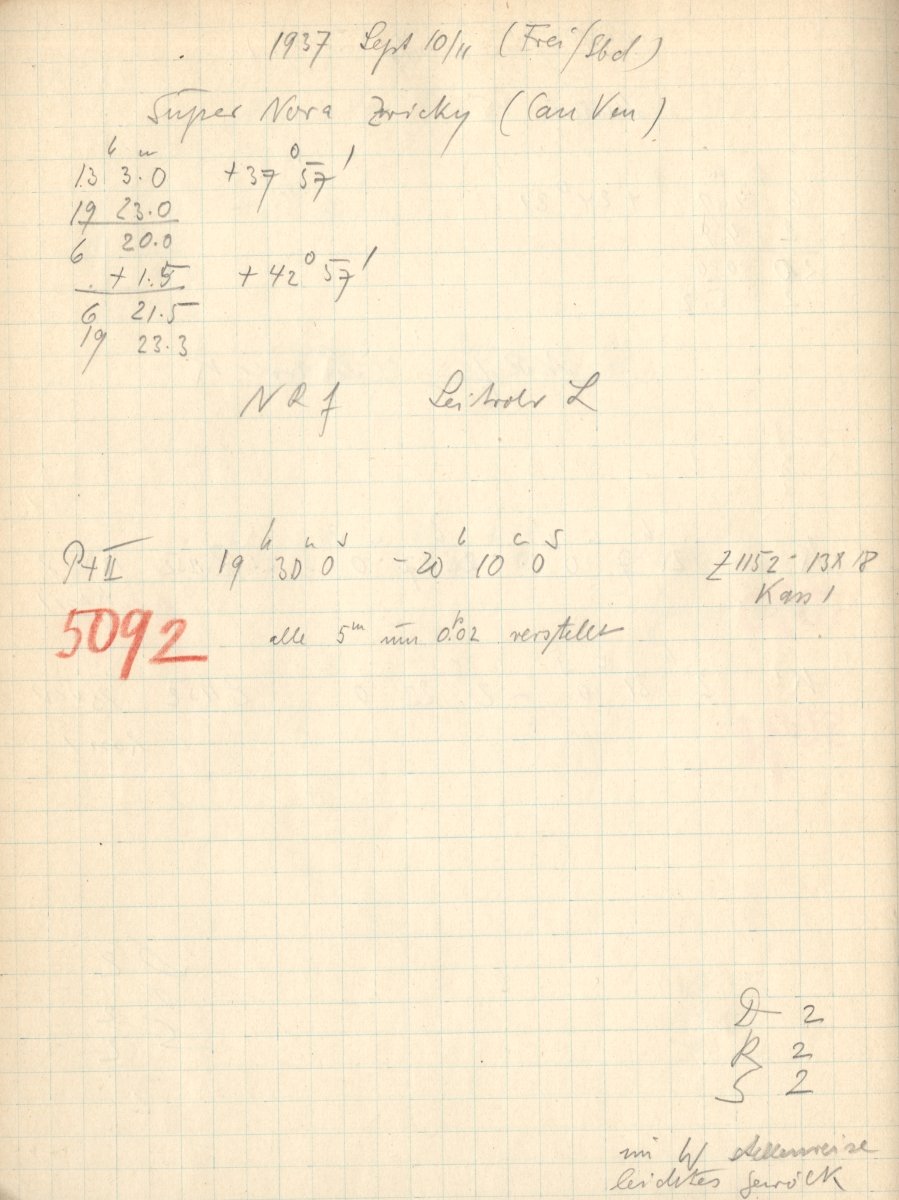 1937 Sept 10/11 (Frei/Sbd)
Super Nova Zwicky (Can Ven)
13h 3m.0 +37° 57'
19 23.0
6 20.0
+ 1.5 +42° 57'
6 21.5
19 23.3
NRf Leitrohr L
P+II 19h 30m 0s - 20h 10m 0s Z1152- 13X18
Kass 1
5092 alle 5m um 0R.02 verstellt
D 2
R 2
S 2
im W stellenweise
leichtes Gewölk